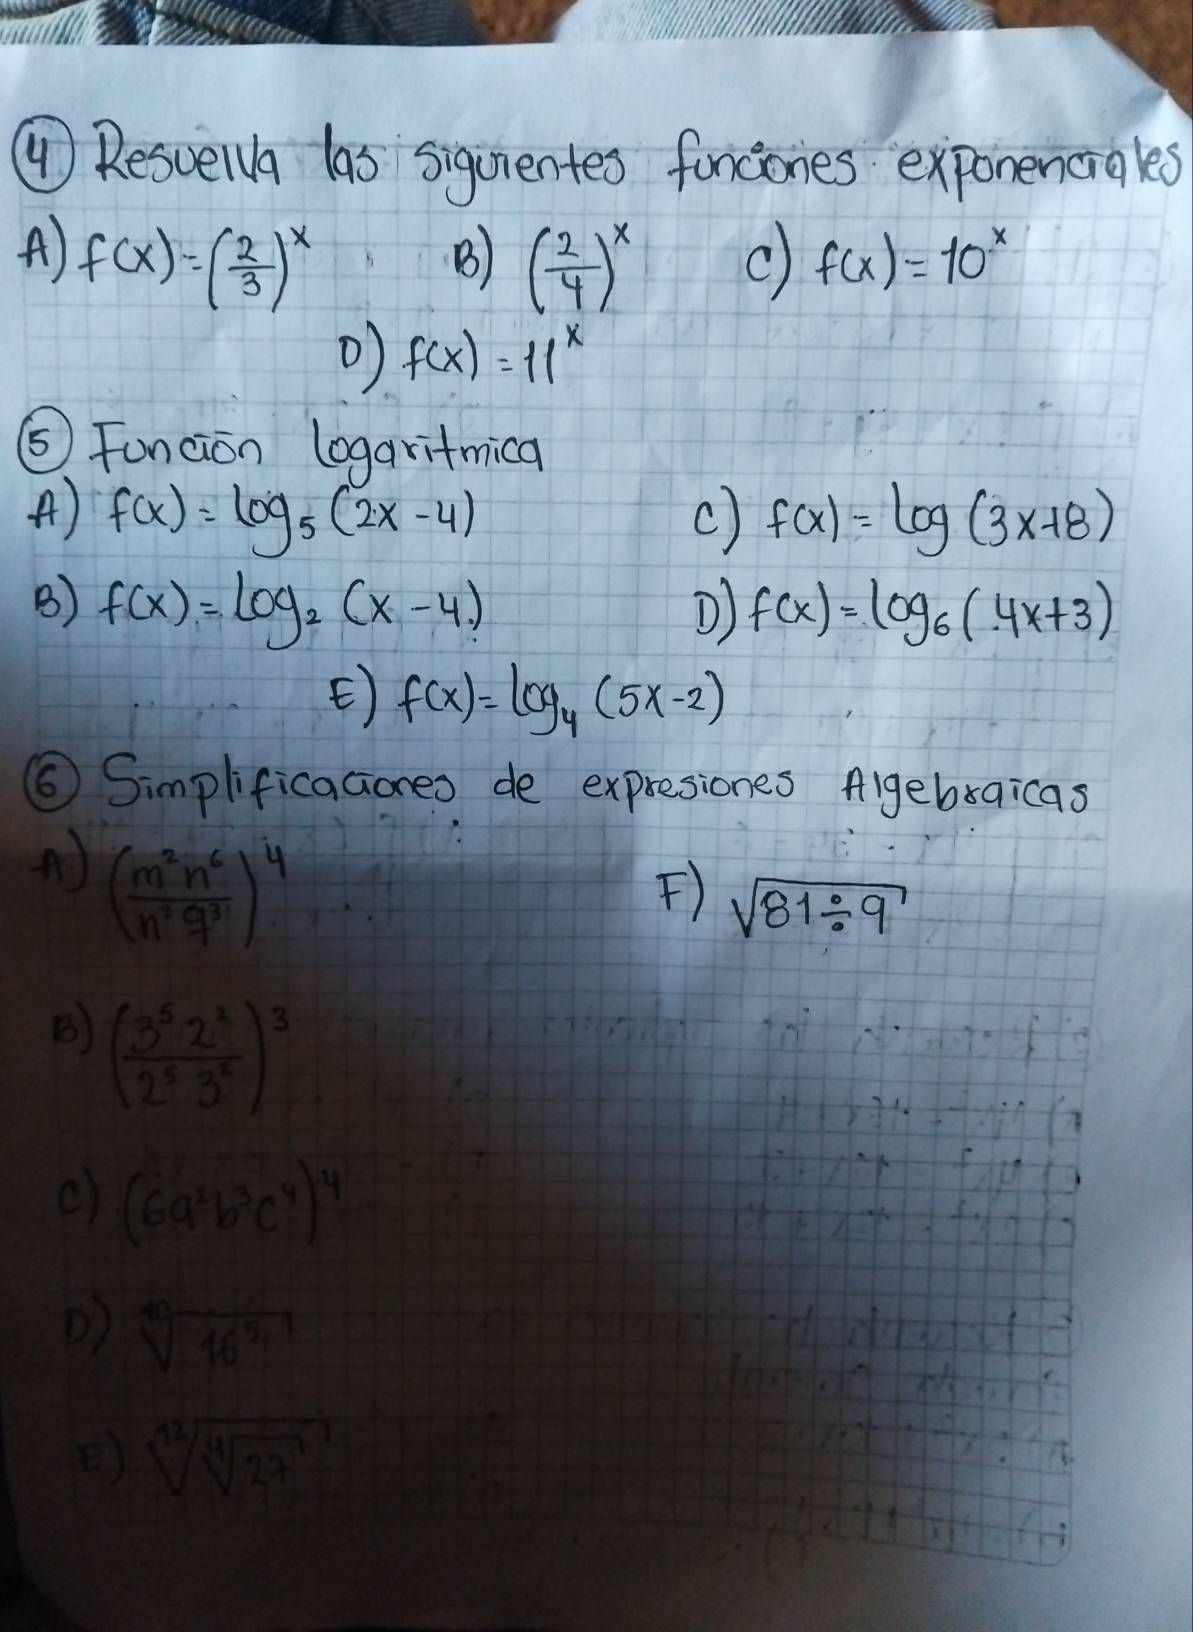 ④ Resuelva las siguientes funciones exponenciales
A) f(x)=(2/3)^x B) (2/4)^x C) f(x)=10^x
D) f(x)=11^x
⑤ Función logaritmica
A) f(x)=log₅(2x-4) C) f(x)=log(3x+8)
B) f(x)=log₂(x-4) D) f(x)=log₆(4x+3)
E) f(x)=log₄(5x-2)
⑥ Simplificaciones de expresiones Algebraicas
A) (m²n⁶/n²q³)⁴ F) √(81÷9)
B) (3⁵2²/2⁵3²)³
C) (6a²b³c⁴)⁴
D) ¹⁰√(16⁵)
E) ¹²√(⁴√27)